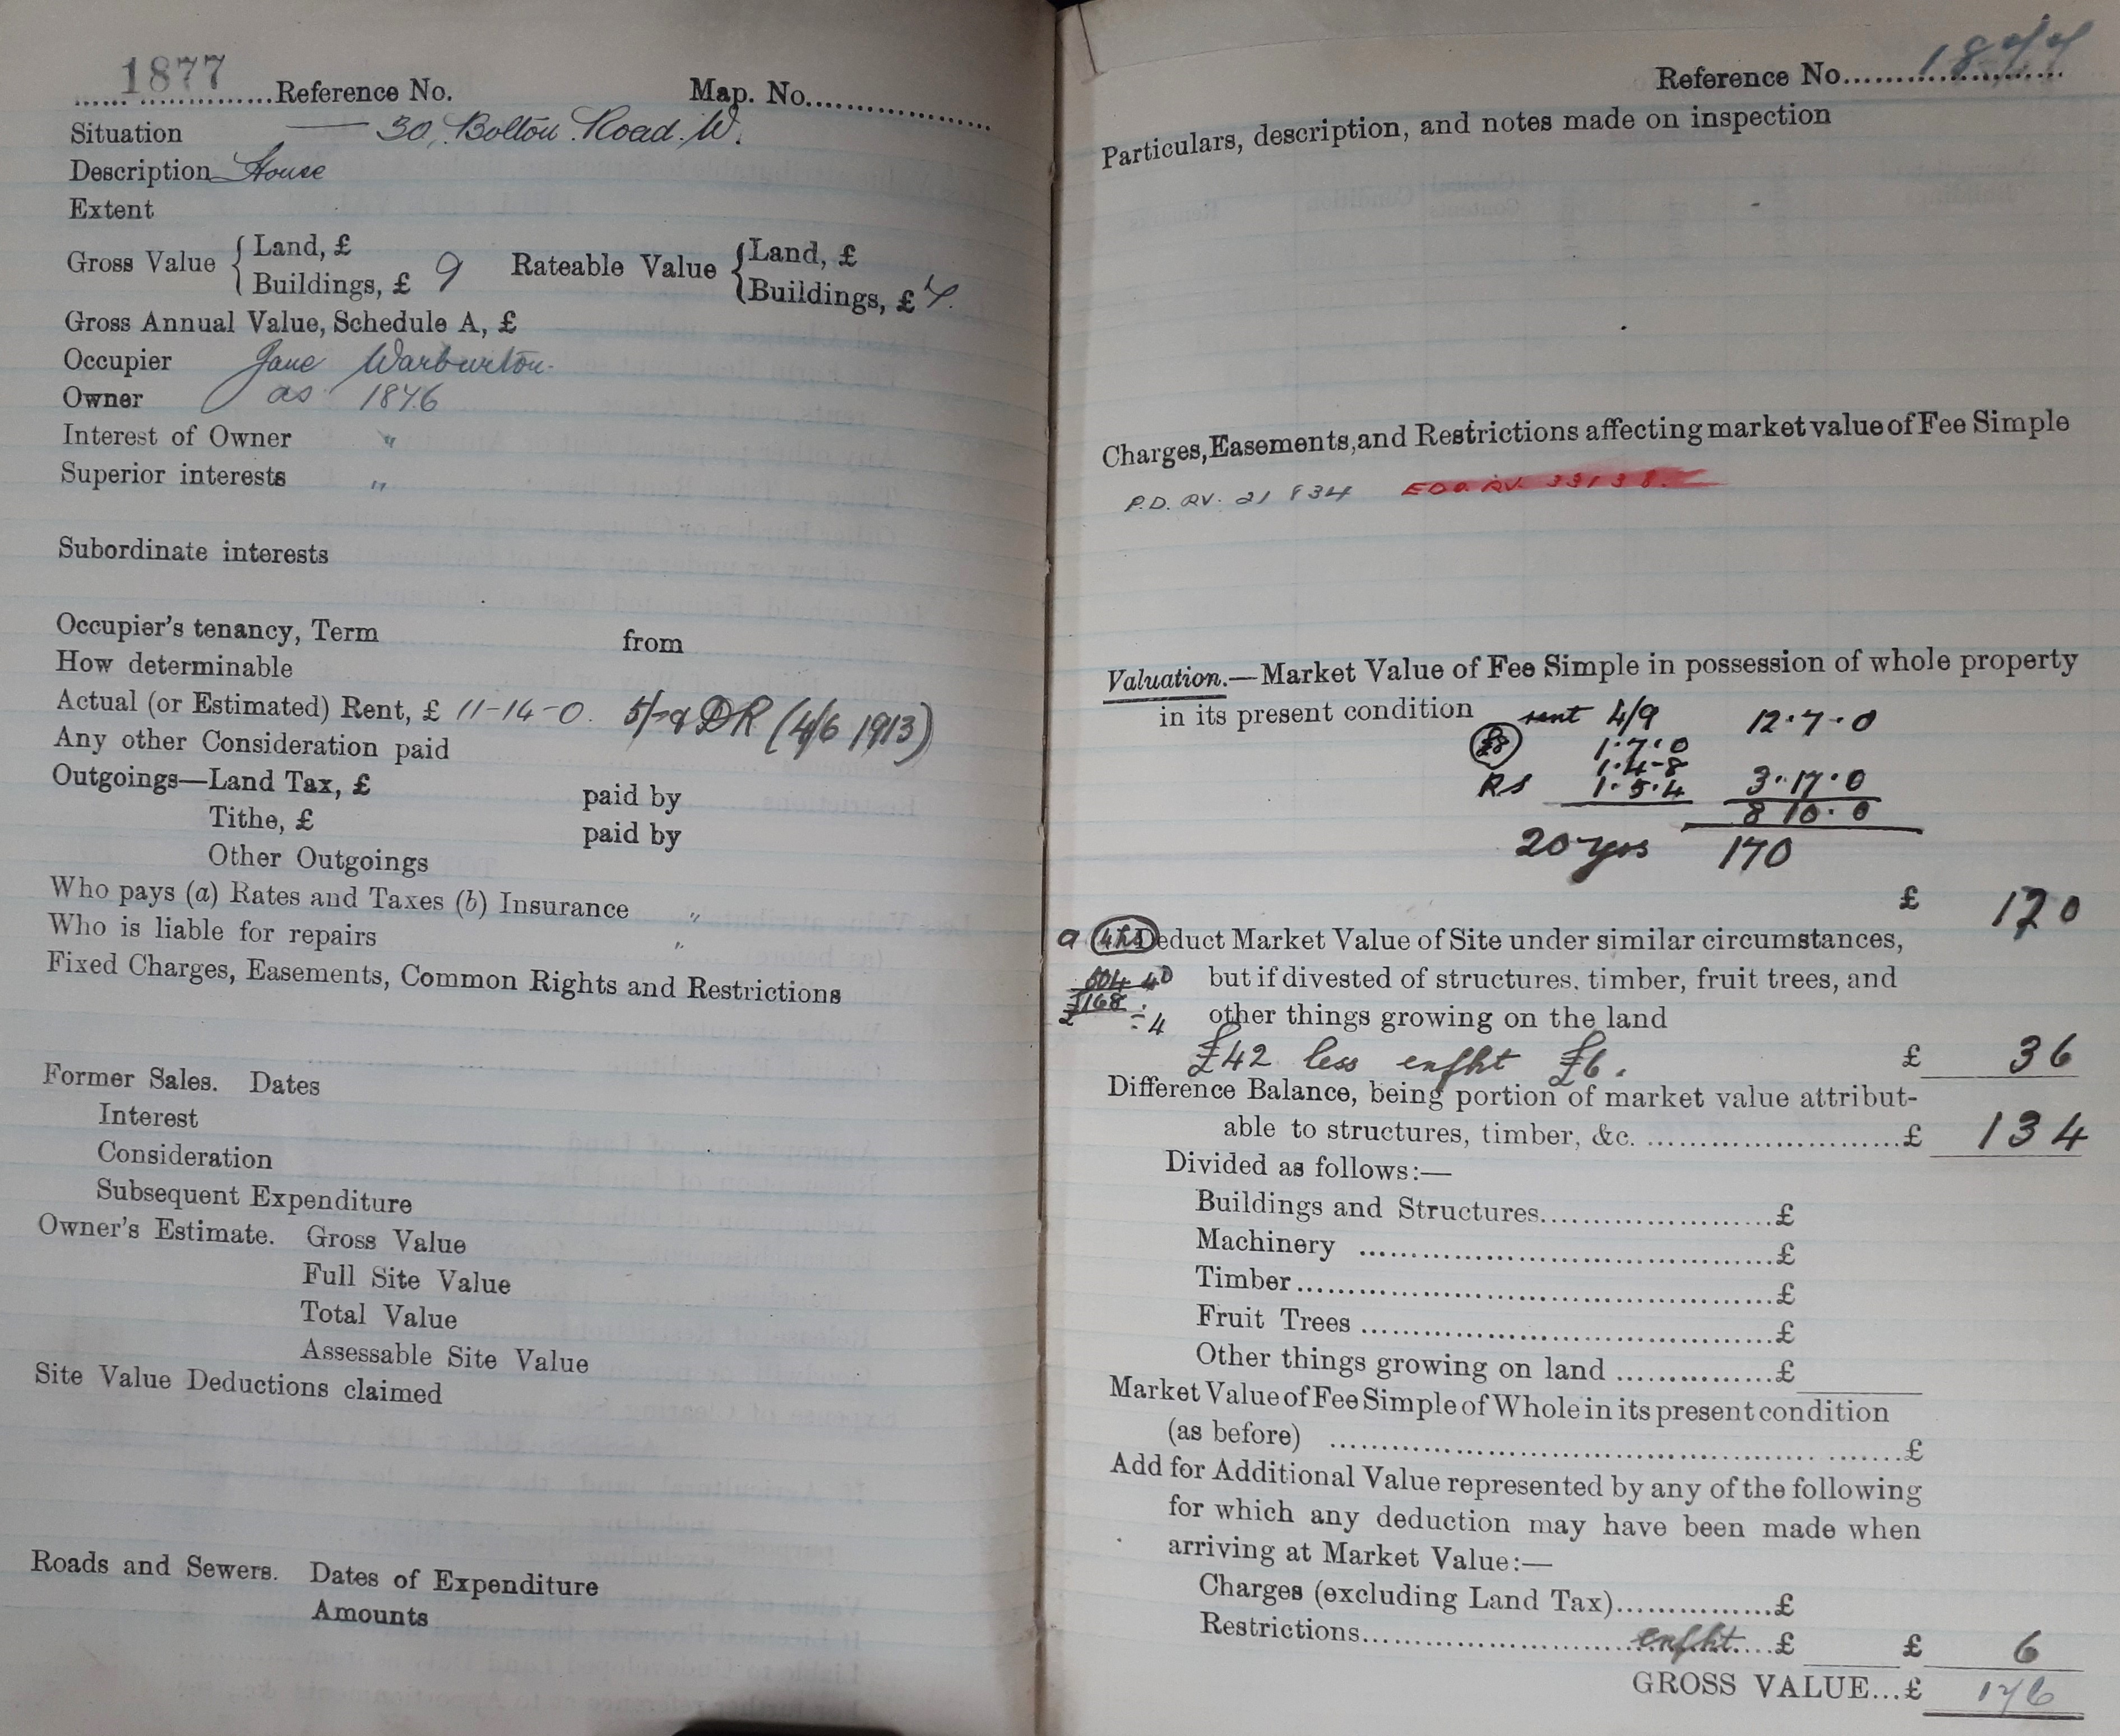 1877 Reference No. Map. No.
Situation — 30, Bolton Road. W.
Description House
Extent
Gross Value { Land, £
Buildings, £ 9
Rateable Value { Land, £
Buildings, £ 7.
Gross Annual Value, Schedule A, £
Occupier Jane Warburton.
Owner as 1876
Interest of Owner "
Superior interests "
Subordinate interests
Occupier's tenancy, Term from
How determinable
Actual (or Estimated) Rent, £ 11-14-0. DR (4/6 1913)
Any other Consideration paid
Outgoings—Land Tax, £ paid by
Tithe, £ paid by
Other Outgoings
Who pays (a) Rates and Taxes (b) Insurance "
Who is liable for repairs "
Fixed Charges, Easements, Common Rights and Restrictions
Former Sales. Dates
Interest
Consideration
Subsequent Expenditure
Owner's Estimate. Gross Value
Full Site Value
Total Value
Assessable Site Value
Site Value Deductions claimed
Roads and Sewers. Dates of Expenditure
Amounts
Reference No. 1877
Particulars, description, and notes made on inspection
Charges, Easements, and Restrictions affecting market value of Fee Simple
P.D. RV. 21 834
Valuation.—Market Value of Fee Simple in possession of whole property
in its present condition rent 4/9 12.7.0
£8 1.7.0
1.4-8
RS 1.5.4 3.17.0
8 10.0
20 yrs 170
£ 170
a 4hs Deduct Market Value of Site under similar circumstances,
604 40 but if divested of structures, timber, fruit trees, and
£168 ÷ 4 other things growing on the land
£42 less enfht £6. £ 36
Difference Balance, being portion of market value attribut-
able to structures, timber, &c. £ 134
Divided as follows:—
Buildings and Structures £
Machinery £
Timber £
Fruit Trees £
Other things growing on land £
Market Value of Fee Simple of Whole in its present condition
(as before) £
Add for Additional Value represented by any of the following
for which any deduction may have been made when
arriving at Market Value:—
Charges (excluding Land Tax) £
Restrictions enfht £ £ 6
GROSS VALUE... £ 176